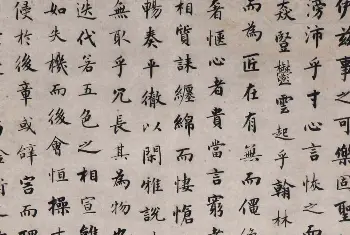 伊茲事之可樂固聖
滂沛乎寸心言恢之
焱豎鬱雲起乎翰林
而為匠在有無而僶
者愜心者貴當言窮者
相質誄纏綿而悽愴
暢奏平徹以閑雅說
無取乎冗長其為物也
迭代若五色之相宣
如失機而後會恒操
侵於後章或辭害而理